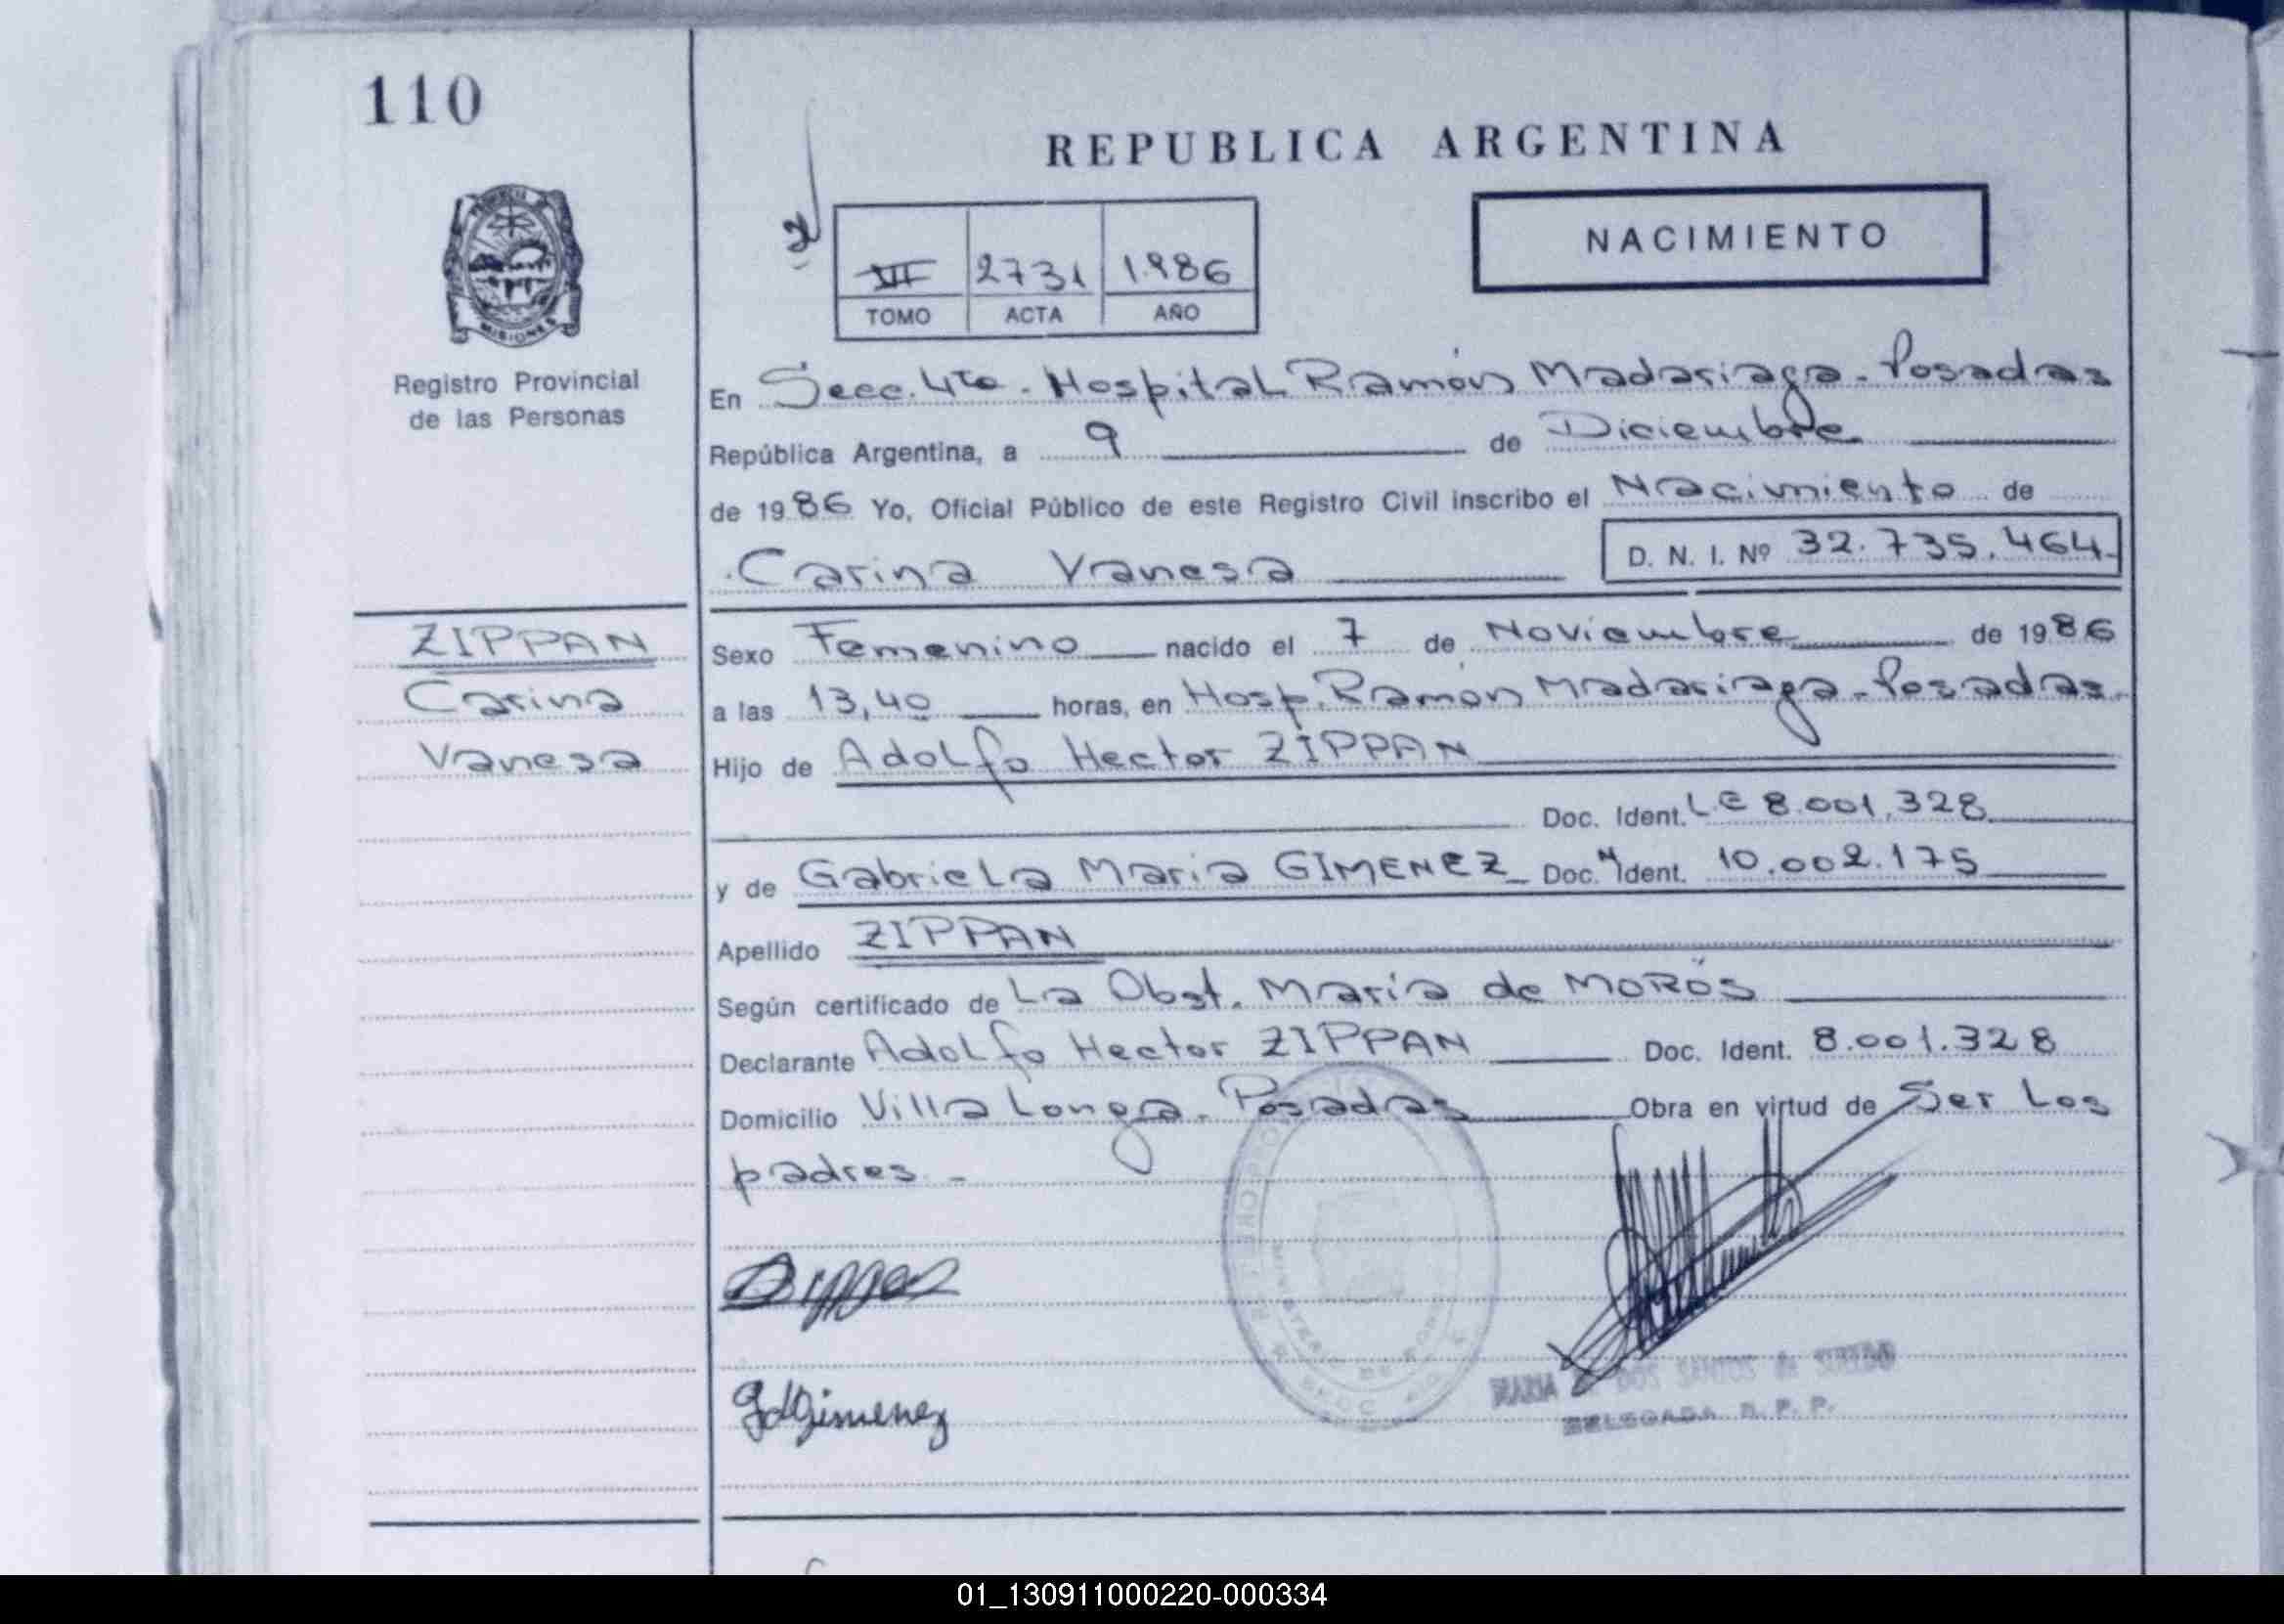 110
REPUBLICA ARGENTINA
NACIMIENTO
VII 2731 1986
TOMO ACTA AÑO
MISIONES
Registro Provincial
de las Personas
En Secc. 4ta. Hospital Ramón Madariaga - Posadas
República Argentina, a 9 de Diciembre
de 1986 Yo, Oficial Público de este Registro Civil inscribo el Nacimiento de
Carina Vanesa D. N. I. Nº 32.735.464
ZIPPAN
Carina
Vanesa
Sexo Femenino nacido el 7 de Noviembre de 1986
a las 13,40 horas, en Hosp. Ramón Madariaga - Posadas
Hijo de Adolfo Hector ZIPPAN
Doc. Ident. L E 8.001.328
y de Gabriela Maria GIMENEZ Doc. Ident. 10.002.175
Apellido ZIPPAN
Según certificado de La Obst. María de MORÓS
Declarante Adolfo Hector ZIPPAN Doc. Ident. 8.001.328
Domicilio Villa Longa - Posadas Obra en virtud de Ser Los
padres -
Gimenez
MARIA DOS SANTOS de
DELEGADA R. P. P.
01_130911000220-000334